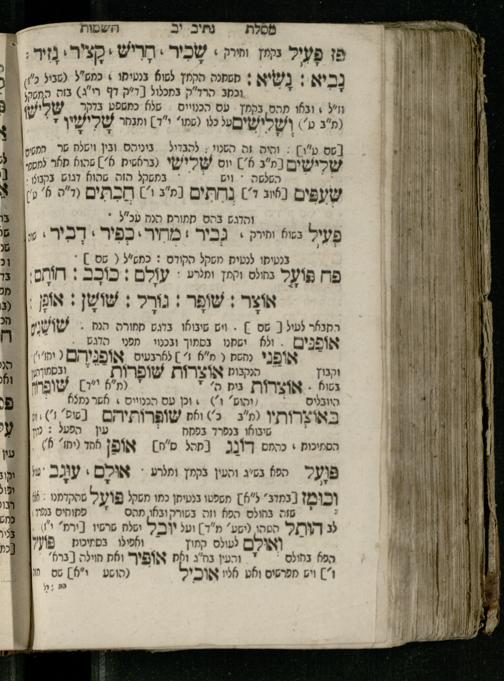 מסלת נתיב יב השמות
פז פָּעִיל בקמץ וחירק, שָׂכִיר, חָרִישׁ, קָצִיר, נָזִיר:
נָבִיא: נָשִׂיא: תשתנה הקמץ לשוא בנטיתו, כמש"ל (שביל כ"ו)
וכתב הרד"ק במכלול [דיק דף רי"ג] בזה המשקל
וז"ל, ובאו מהם בקמץ עם הכנויים שלא כמשפט בדקר שָׁלִישׁוֹ
(מ"ב ט') וְשָׁלִישִׁים על כלו (שמו' י"ד) ומבחר שָׁלִישָׁיו
[שם ט"ו]. והיה זה השנוי, להבדיל ביניהם ובין וישלח שר חמשים
שְׁלִישִׁים [מ"ב א'] יום שְׁלִישִׁי (בראשית א') שהוא תאר למספר
השלשה ויש במשקל הזה שהוא דגוש בקבולו
שְׂעִפִּים [איוב ד'] נְחִתִּים [מ"ב ו'] חֲבִתִּים (ד"ה א' ט')
והדגש בהם תמורת הנח עכ"ל
פְּעִיל בשוא וחירק, גְּבִיר, מְחִיר, כְּפִיר, דְּבִיר,
בנטיתו לנטית משקל הקודם: כמש"ל (שם).
פח פּוֹעָל בחולם וקמץ ומלרע. עוֹלָם: כּוֹכָב: חוֹתָם:
אוֹצָר: שׁוֹפָר: גּוֹרָל: שׁוֹשָׁן: אוֹפָן:
כמבאר לעיל [שם]. ויש שיבואו בדגש תמורה הנח. שׁוֹשַׁנִּים
אוֹפַנִּים. ולא ישתנו בסמוך ובכנוי מפני הדגש
אוֹפַנֵּי נחשת (מ"א ו') לארבעים אוֹפַנֵּיהֶם (יחז' י')
וקבוץ הנקבות אוֹצָרוֹת שׁוֹפָרוֹת ובסמוך
בשוא. אוֹצְרוֹת בית ה' (מ"א י"ד) שׁוֹפְרוֹת
היובלים (יהוש' ו'), וכן עם הכנויים, אשר נמלא
בְּאוֹצְרוֹתָיו (מ"ב כ') ואת שׁוֹפְרוֹתֵיהֶם (שופ' ז'),
שיבואו בנפרד בפתח עין הפעל:
הסתיכות, כהמס דּוֹנַג [תהל' ס"ח] אוֹפַן אחד (יחז' א')
פּוּעָל הפא בשו"ג והעין בקמץ ומלרע. אוּלָם, עוּגָב.
וְכוּמָז [במדב' ל"א] משפטו בנטיתו כמו משקל פּוֹעָל שהקדמנו:
שזה בחולם הפא וזה בשורק ובאו מהם פתוחים
לב הוּתַל הטהו (ישע' מ"ד) ועל יוּבַל ישלח שרשיו (ירמ' י"ז)
וְאוּלָם לעולם קמוץ ואפילו בסמיכות פּוֹעִיל
הפא בחולם והעין בח"ג ואת אוֹפִיר ואת חוילה (ברא'
ו') ויש מפרשים ואט אליו אוֹכִיל (הושע י"א) שם